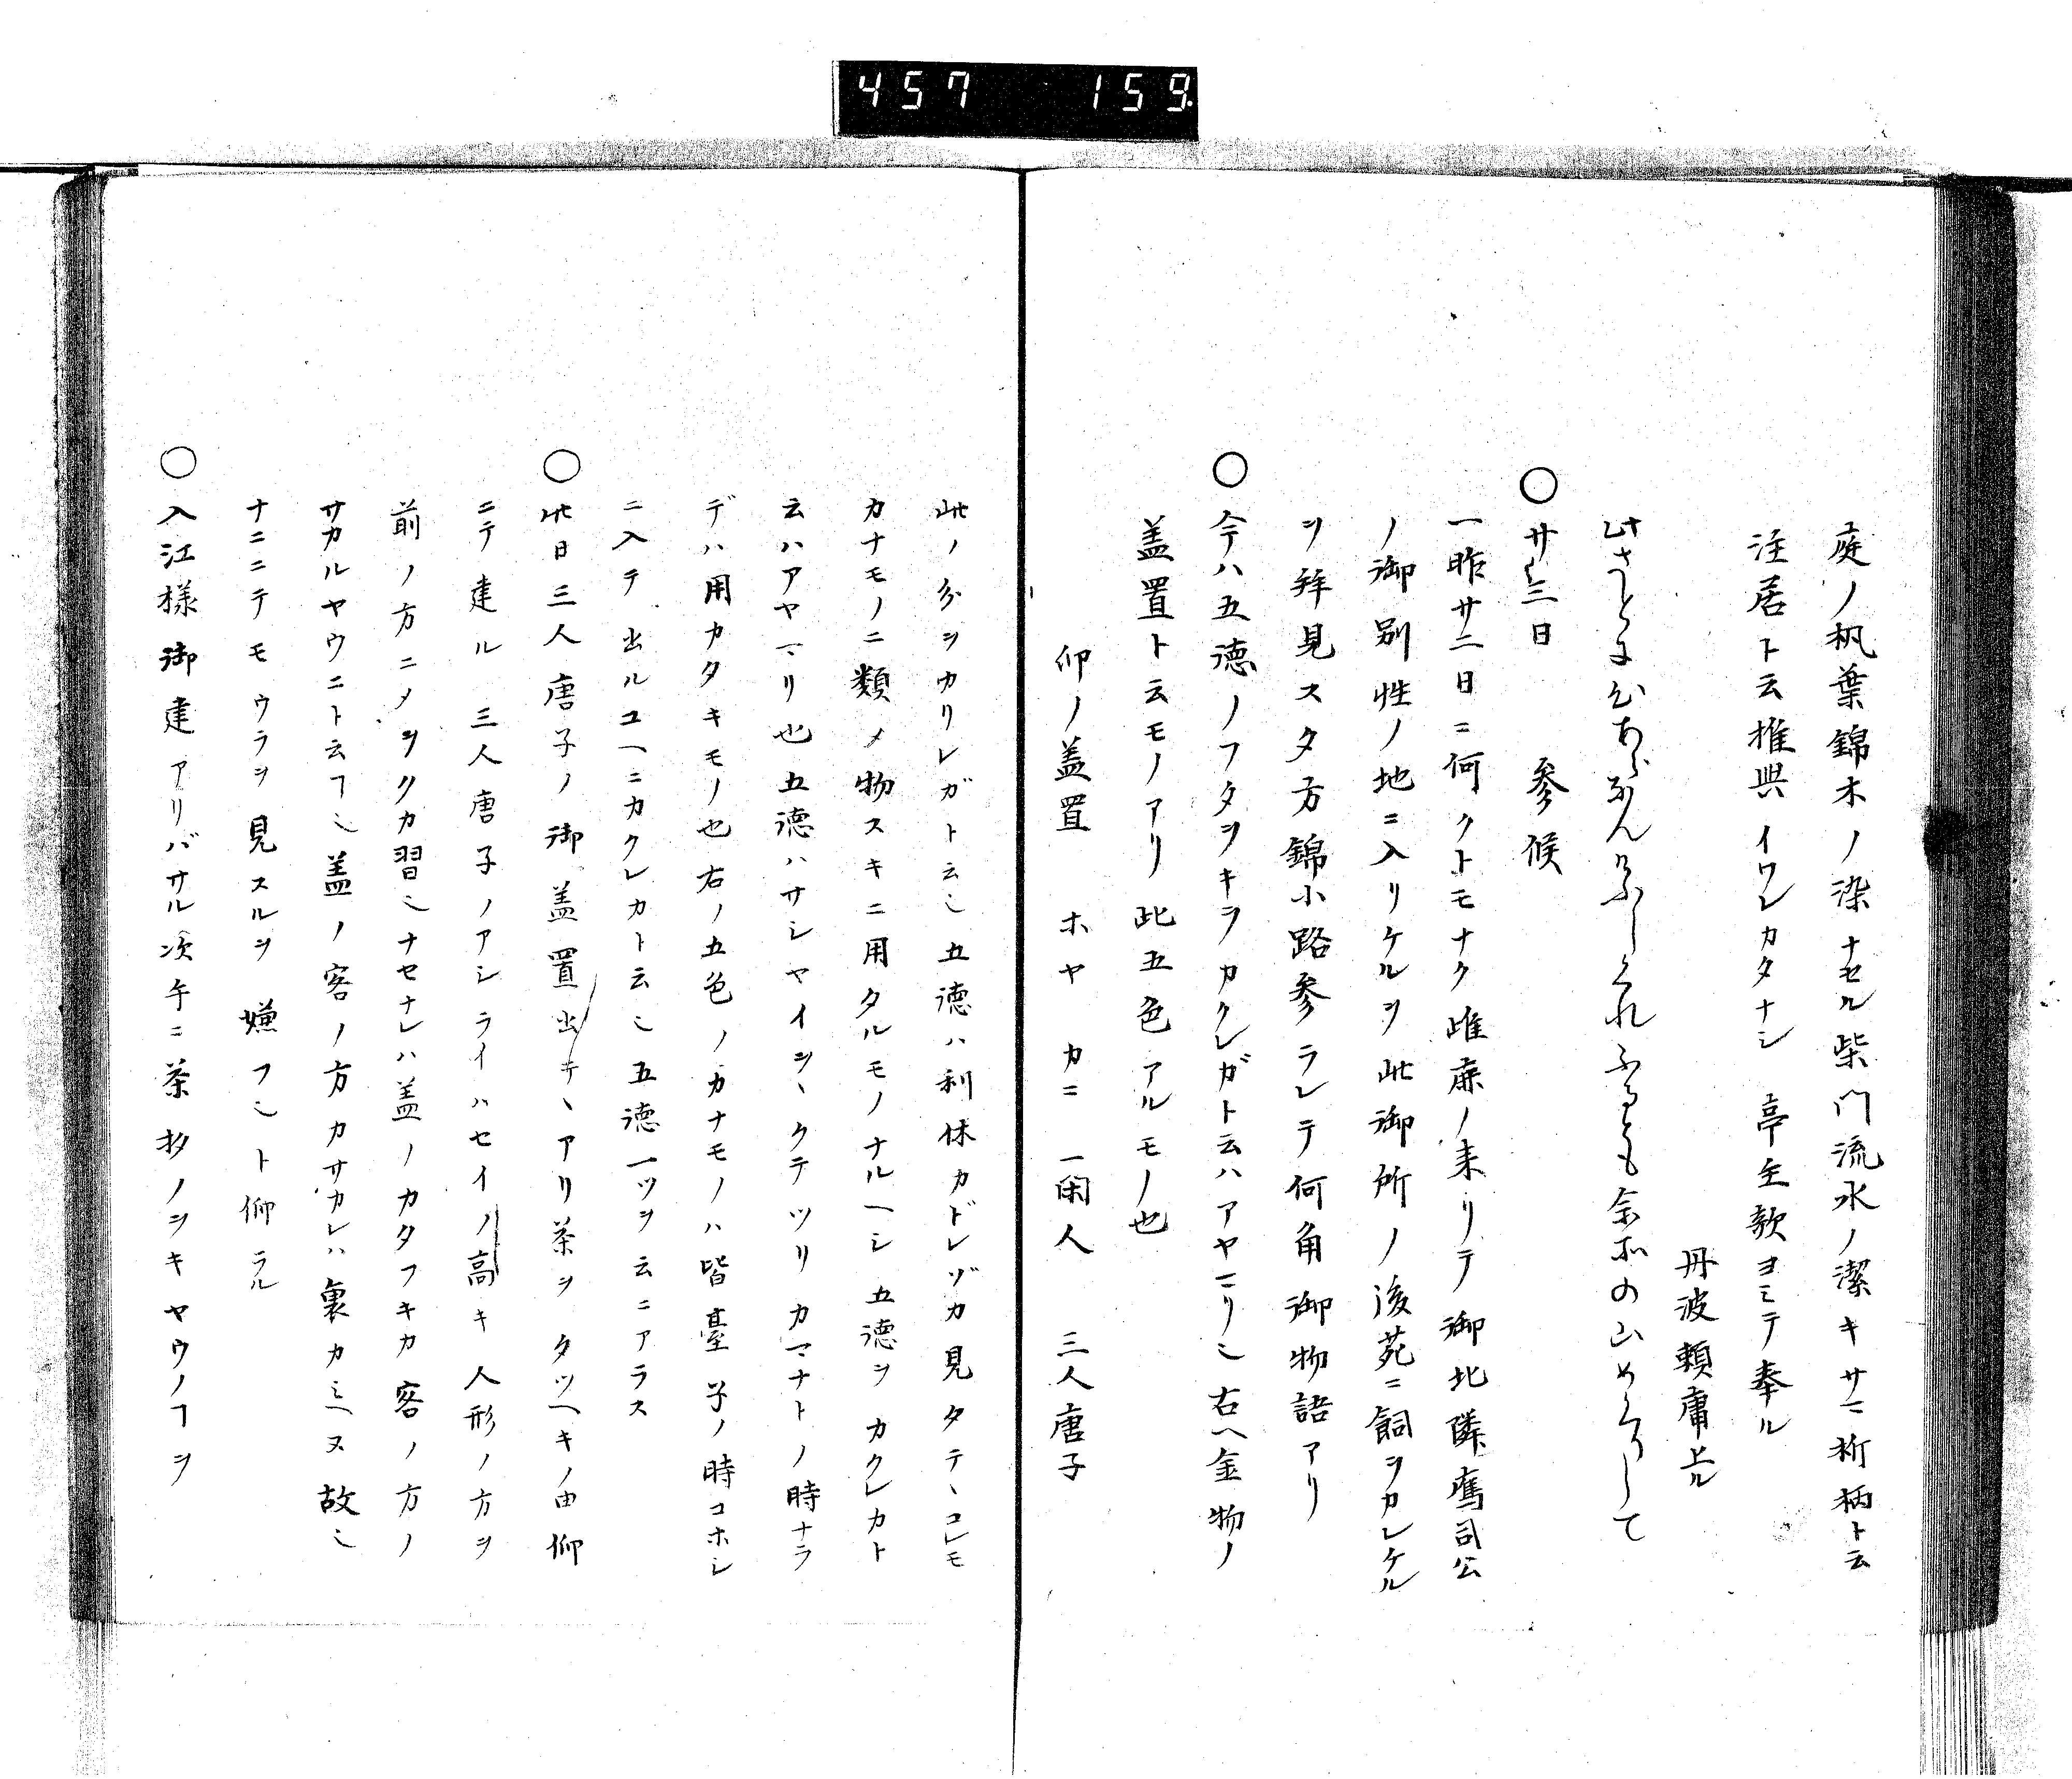 457 159
庭ノ楓葉錦木ノ染ナセル柴門流水ノ潔キサマ折柄ト云
注居ト云推興イワレカタナシ 亭主歌ヨミテ奉ル
丹波頼庸上ル
〇廿三日 参候
一昨廿二日ニ何クトモナク雌鹿ノ来リテ御北隣鷹司公
ノ御別性ノ地ニ入リケルヲ此御所ノ後苑ニ飼ヲカレケル
ヲ拝見スタ方錦小路参ラレテ何角御物語アリ
〇今ハ五徳ノフタヲキヲカクレガト云ハアヤマリ也右ヘ金物ノ
蓋置ト云モノアリ此五色アルモノ也
仰ノ蓋置 ホヤ カニ 一閑人 三人唐子
此ノ分ヲカリレガト云也五徳ハ利休カドレゾカ見タテヽコレモ
カナモノニ類メ物スキニ用タルモノナルヘシ五徳ヲカクレカト
云ハアヤマリ也五徳ハサシヤイシヽクテツリカマナトノ時ナラ
デハ用カタキモノ也右ノ五色ノカナモノハ皆臺子ノ時コホシ
ニ入テ出ルユヘニカクレカト云也五徳一ツヲ云ニアラス
〇此日三人唐子ノ御蓋置出サヽアリ茶ヲタツヘキノ由仰
ニテ建ル三人唐子ノアシライハセイノ高キ人形ノ方ヲ
前ノ方ニメヲクカ習也ナセナレハ蓋ノカタフキカ客ノ方ノ
サカルヤウニト云ヿ也蓋ノ客ノ方カサカレハ裏カミヘヌ故也
ナニニテモウラヲ見スルヲ嫌フ也ト仰ラル
〇入江様御建アリバサル次午ニ茶杓ノヲキヤウノヿヲ